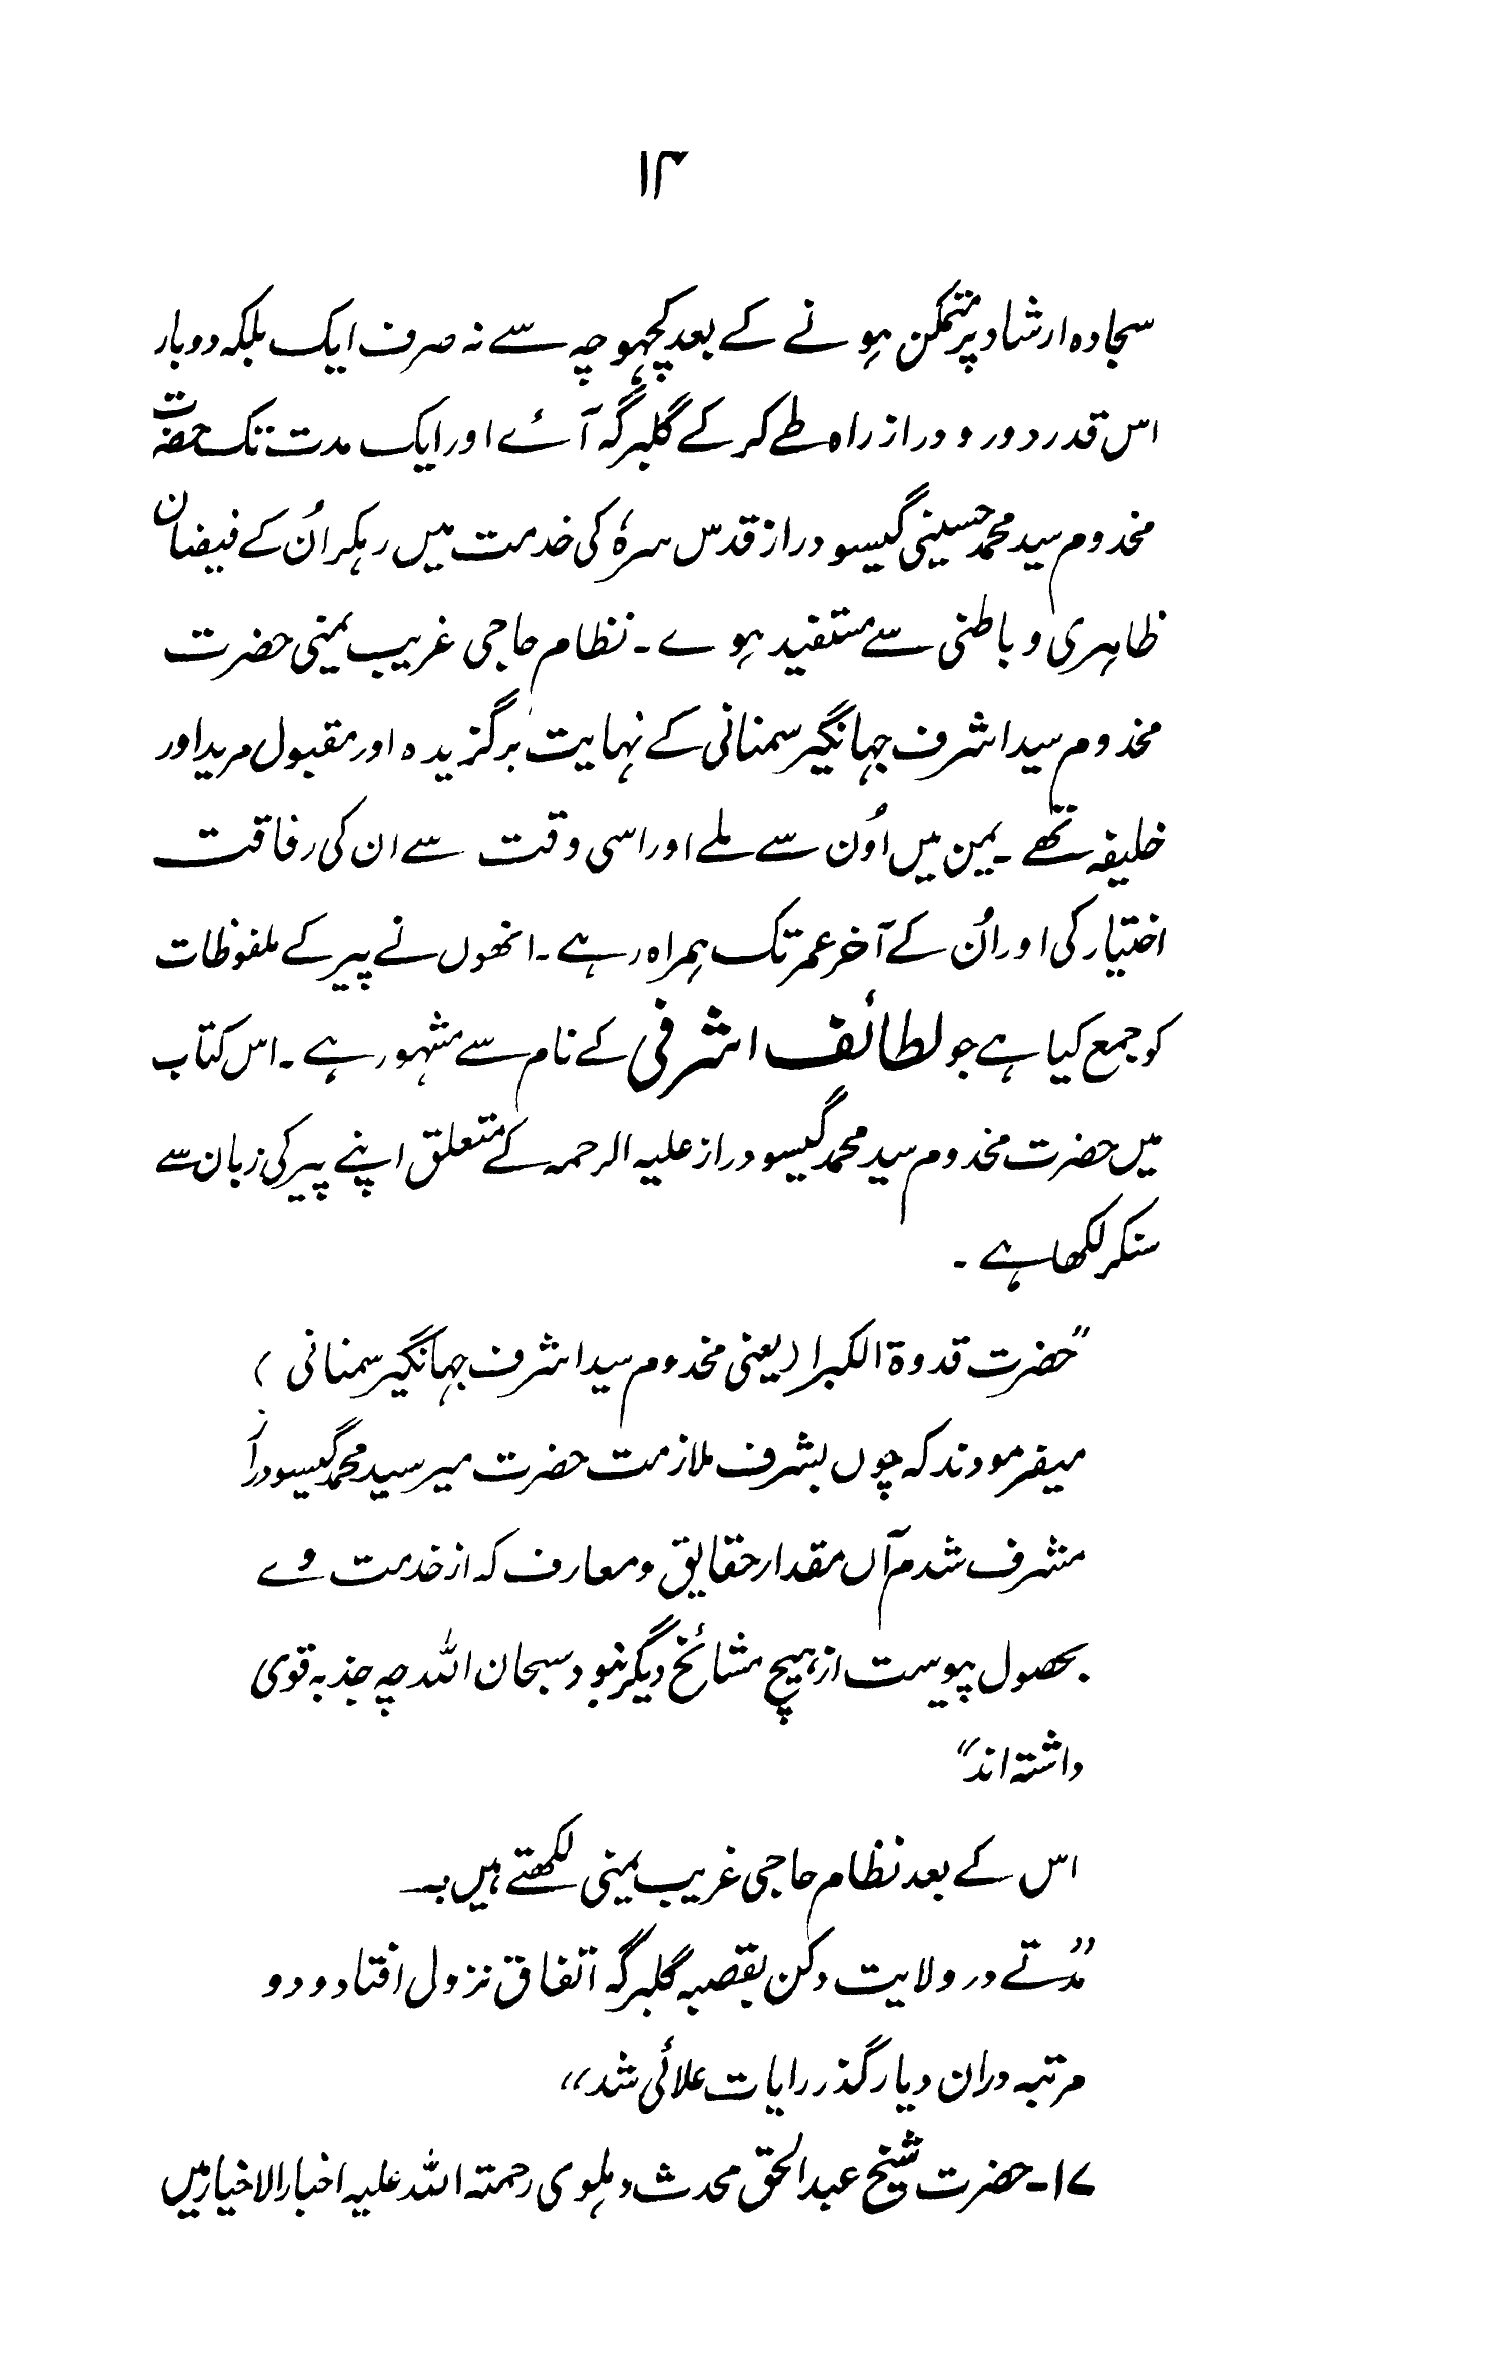 ۱۴
سجادہ ارشاد پر متمکن ہونے کے بعد کچھوچہ سے نہ صرف ایک بلکہ دوبار
اس قدر دور و دراز راہ طے کر کے گلبرگہ آئے اور ایک مدت تک حضرت
مخدوم سید محمد حسینی گیسو دراز قدس سرہٗ کی خدمت میں رہکر اُن کے فیضان
ظاہری و باطنی سے مستفید ہوے ۔ نظام حاجی غریب یمنی حضرت
مخدوم سید اشرف جہانگیر سمنانی کے نہایت برگزیدہ اور مقبول مرید اور
خلیفہ تھے ۔ یمن میں اوُن سے ملے اور اسی وقت سے ان کی رفاقت
اختیار کی اور اُن کے آخر عمر تک ہمراہ رہے ۔ انھوں نے پیر کے ملفوظات
کو جمع کیا ہے جو لطائف اشرفی کے نام سے مشہور ہے ۔ اس کتاب
میں حضرت مخدوم سید محمد گیسو دراز علیہ الرحمہ کے متعلق اپنے پیر کی زبان سے
سنکر لکھا ہے ۔
”حضرت قدوۃ الکبرا (یعنی مخدوم سید اشرف جہانگیر سمنانی )
میفرمودند کہ چوں بشرف ملازمت حضرت میر سید محمد گیسو دراز
مشرف شدم آں مقدار حقایق و معارف کہ از خدمت وے
بحصول پیوست از ہیچ مشائخ دیگر نبود سبحان اللہ چہ جذبہ قوی
داشتہ اند“
اس کے بعد نظام حاجی غریب یمنی لکھتے ہیں :۔
”مُدتے در ولایت دکن بقصبہ گلبرگہ اتفاق نزول افتاد و دو
مرتبہ دران دیار گذر رایات علائی شد“
۱۷۔ حضرت شیخ عبدالحق محدث دہلوی رحمتہ اللہ علیہ اخبار الاخیار میں